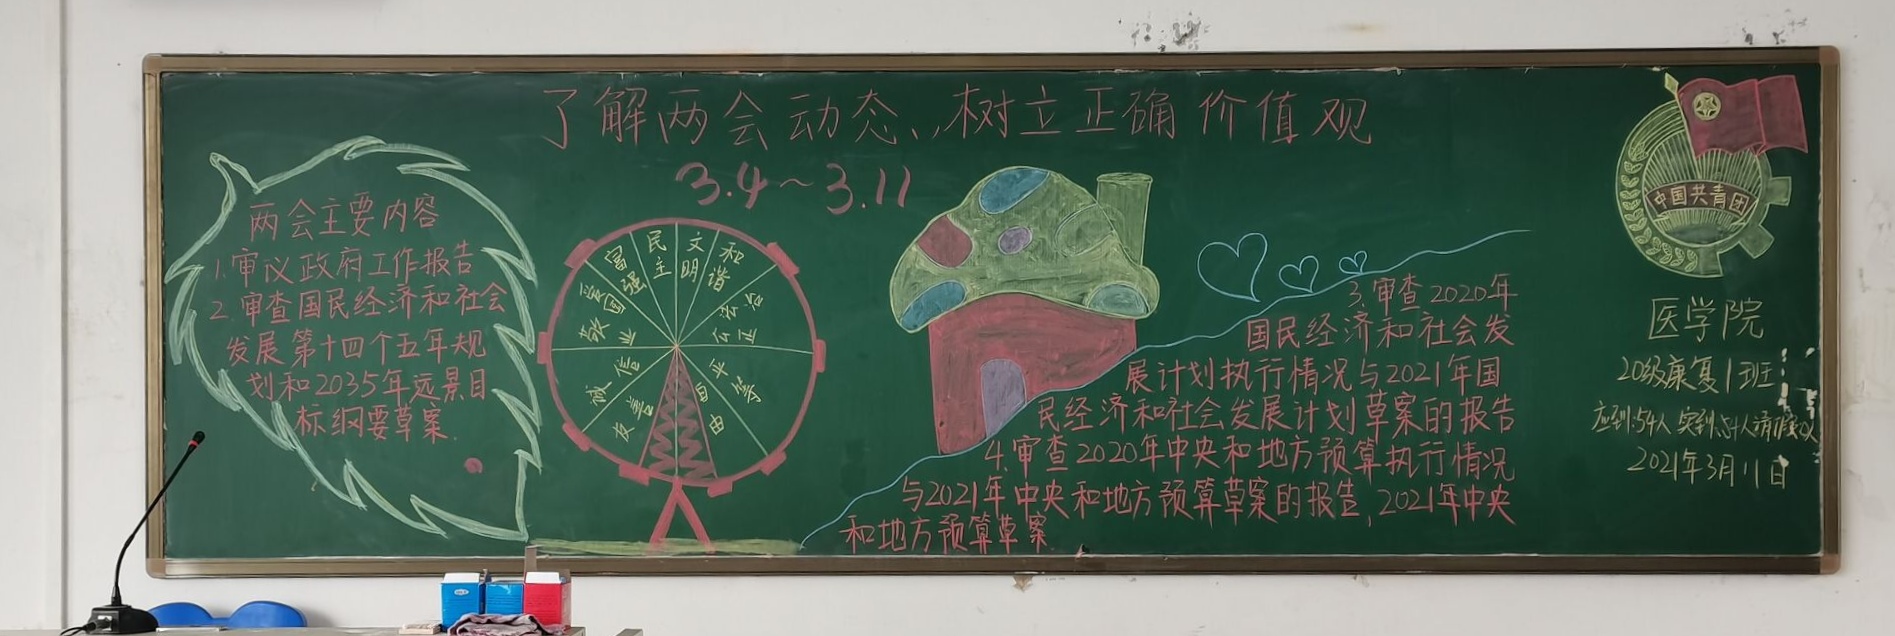 了解两会动态、,树立正确价值观
3.4～3.11
两会主要内容
1.审议政府工作报告
2.审查国民经济和社会
发展第十四个五年规
划和2035年远景目
标纲要草案.
富强
民主
文明
和谐
自由
平等
公正
法治
爱国
敬业
诚信
友善
3.审查2020年
国民经济和社会发
展计划执行情况与2021年国
民经济和社会发展计划草案的报告
4.审查2020年中央和地方预算执行情况
与2021年中央和地方预算草案的报告,2021年中央
和地方预算草案
中国共青团
医学院
20级康复1班
应到:54人 实到:54人
2021年3月11日